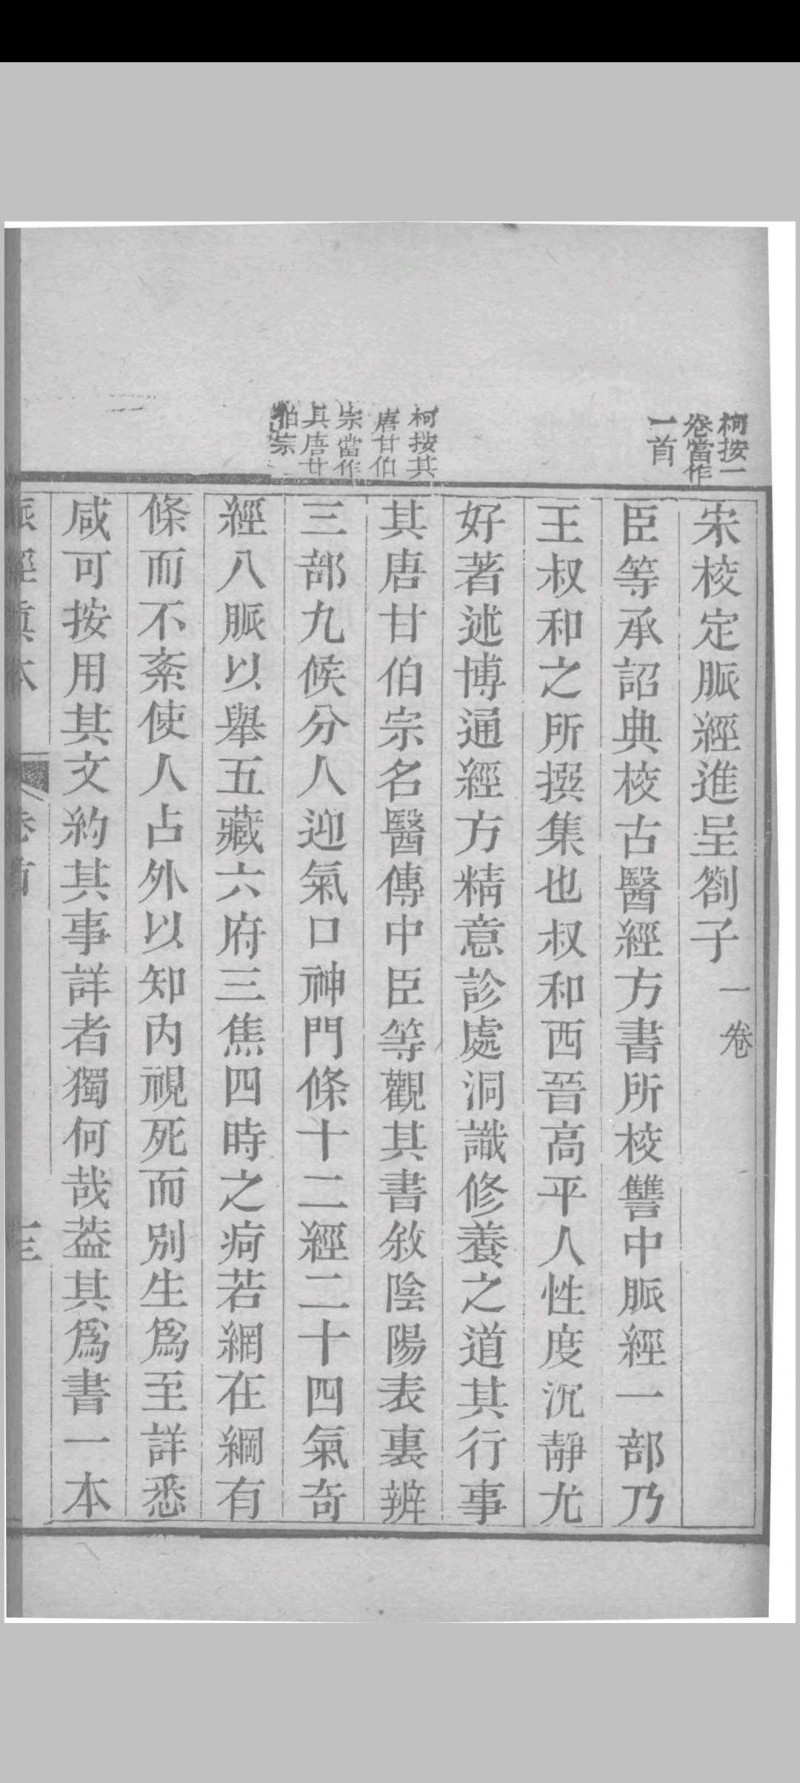 柯按一
卷當作
一首
柯按其
唐甘伯
宗當作
具唐甘
伯宗
宋校定脈經進呈劄子一卷
臣等承詔典校古醫經方書所校讐中脈經一部乃
王叔和之所撰集也叔和西晉高平人性度沉靜尤
好著述博通經方精意診處洞識修養之道其行事
其唐甘伯宗名醫傳中臣等觀其書敘陰陽表裏辨
三部九候分人迎氣口神門條十二經二十四氣奇
經八脈以舉五藏六府三焦四時之疴若網在綱有
條而不紊使人占外以知內視死而別生爲至詳悉
咸可按用其文約其事詳者獨何哉葢其爲書一本
脈經眞本
卷首
十三